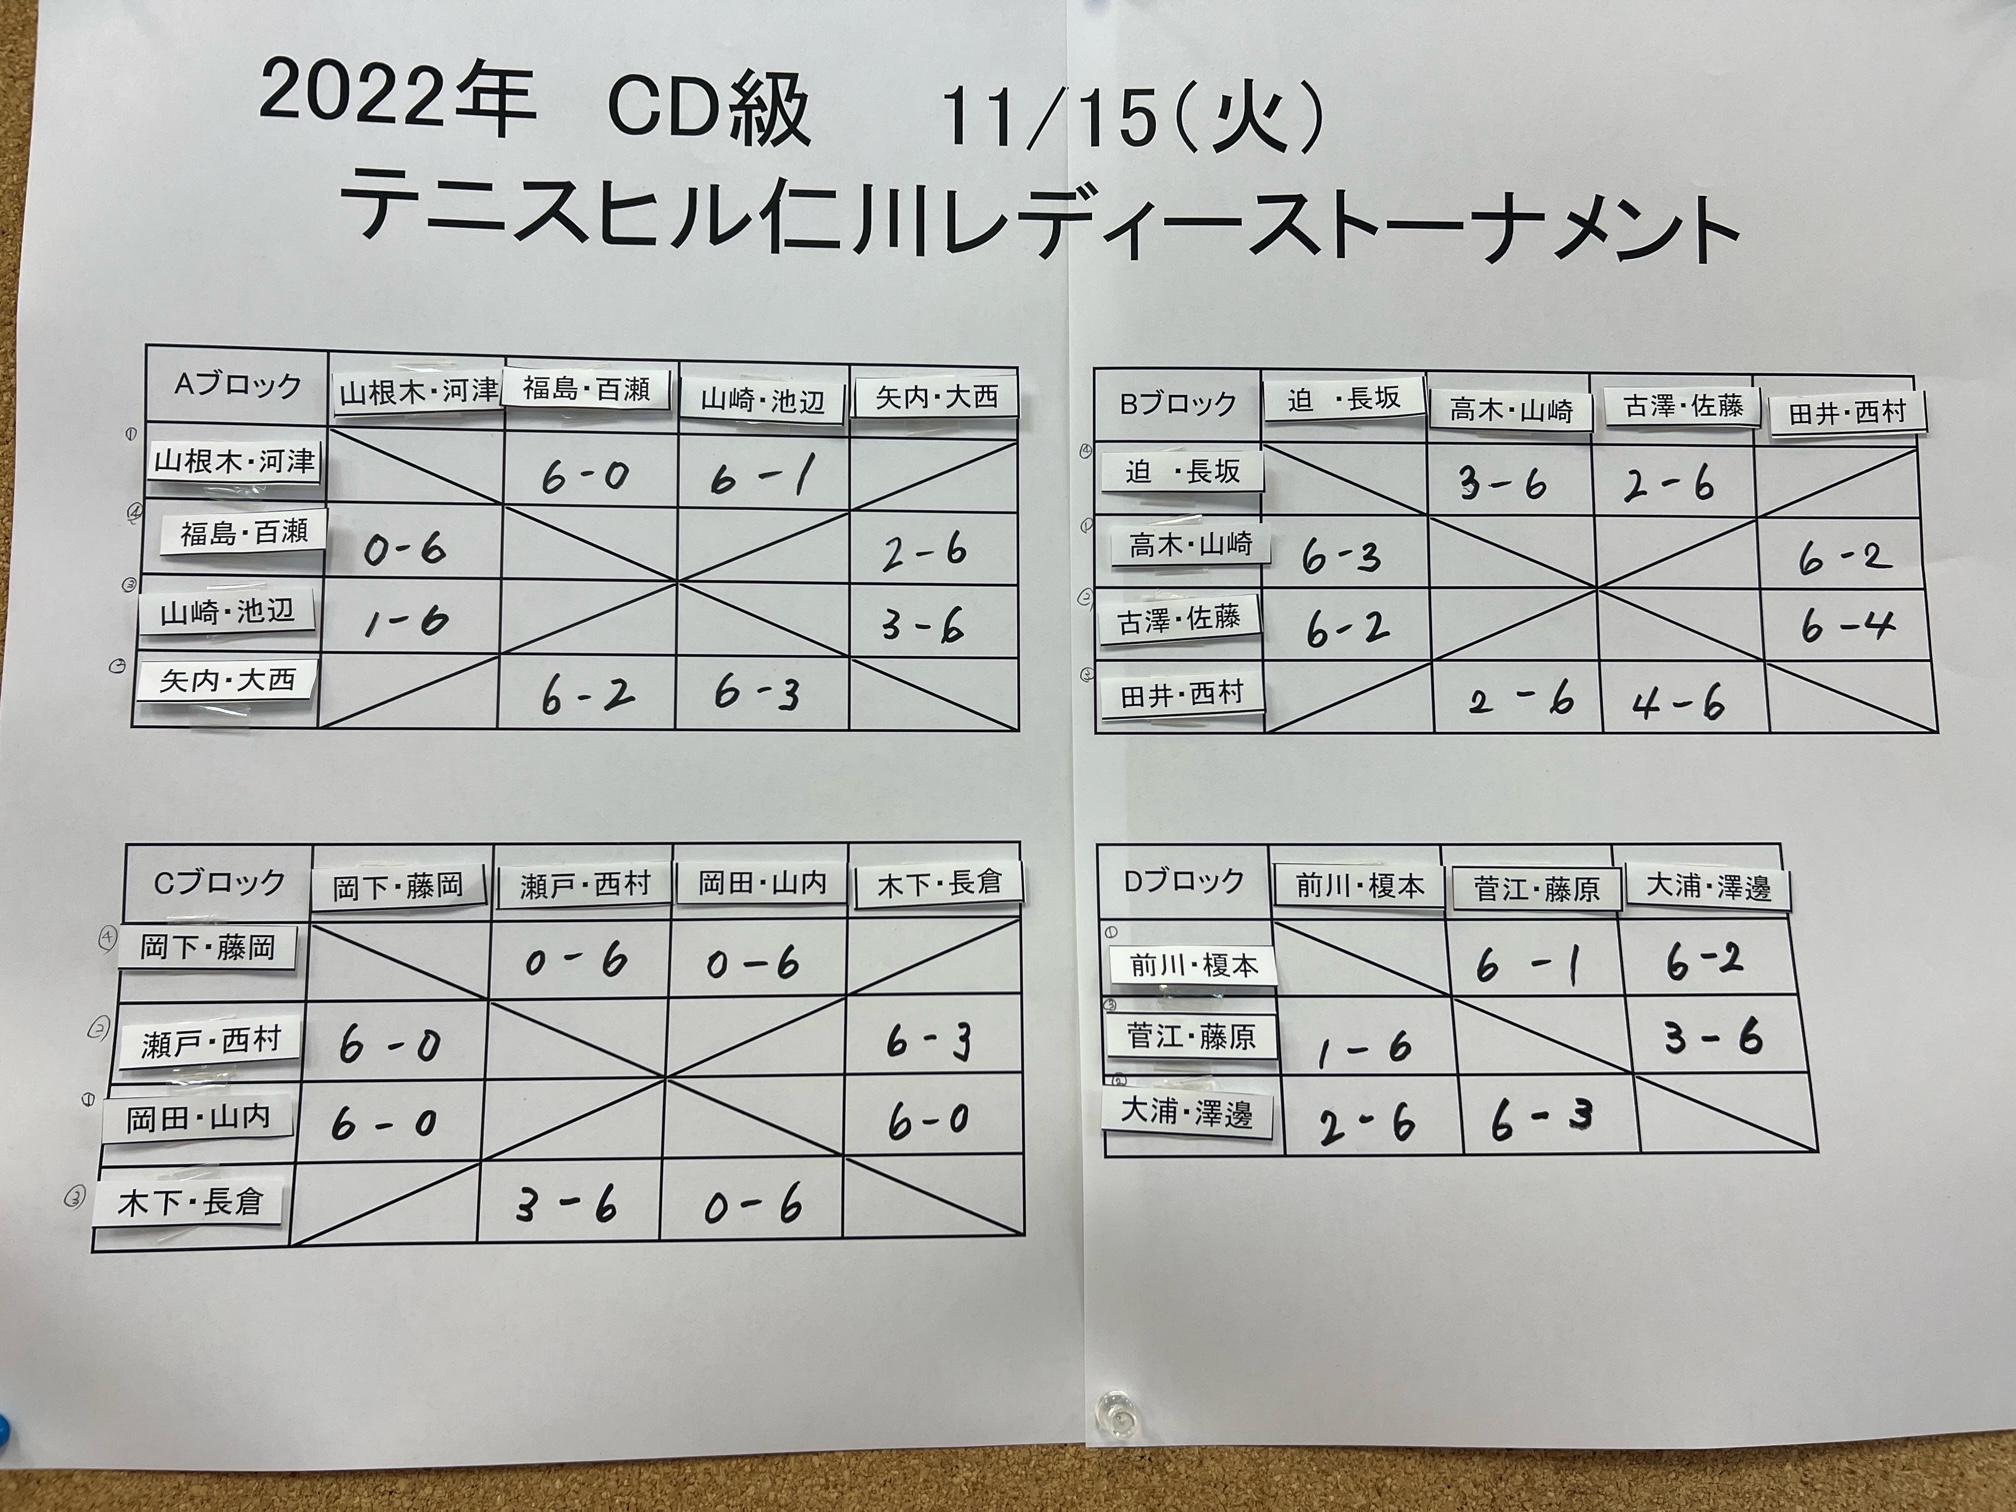 2022年 CD級 11/15(火)
テニスヒル仁川レディーストーナメント
Aブロック 山根木・河津 福島・百瀬 山崎・池辺 矢内・大西
① 山根木・河津 6-0 6-1
④ 福島・百瀬 0-6 2-6
③ 山崎・池辺 1-6 3-6
② 矢内・大西 6-2 6-3
Bブロック 迫 ・長坂 高木・山崎 古澤・佐藤 田井・西村
④ 迫 ・長坂 3-6 2-6
① 高木・山崎 6-3 6-2
② 古澤・佐藤 6-2 6-4
③ 田井・西村 2-6 4-6
Cブロック 岡下・藤岡 瀬戸・西村 岡田・山内 木下・長倉
④ 岡下・藤岡 0-6 0-6
② 瀬戸・西村 6-0 6-3
① 岡田・山内 6-0 6-0
③ 木下・長倉 3-6 0-6
Dブロック 前川・榎本 菅江・藤原 大浦・澤邊
① 前川・榎本 6-1 6-2
③ 菅江・藤原 1-6 3-6
② 大浦・澤邊 2-6 6-3